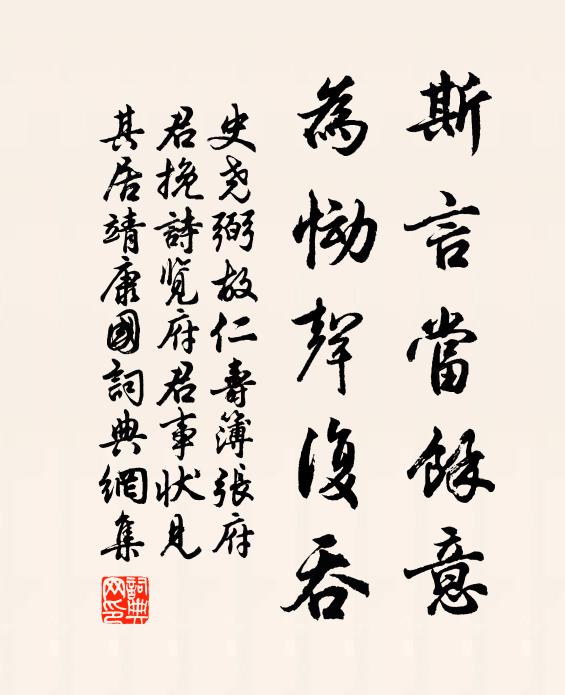 斯言當餘意
為慟聲復吞
史堯弼故仁壽簿張府
君挽詩覽府君事狀見
其居靖康國詞典網集
詞典
网印